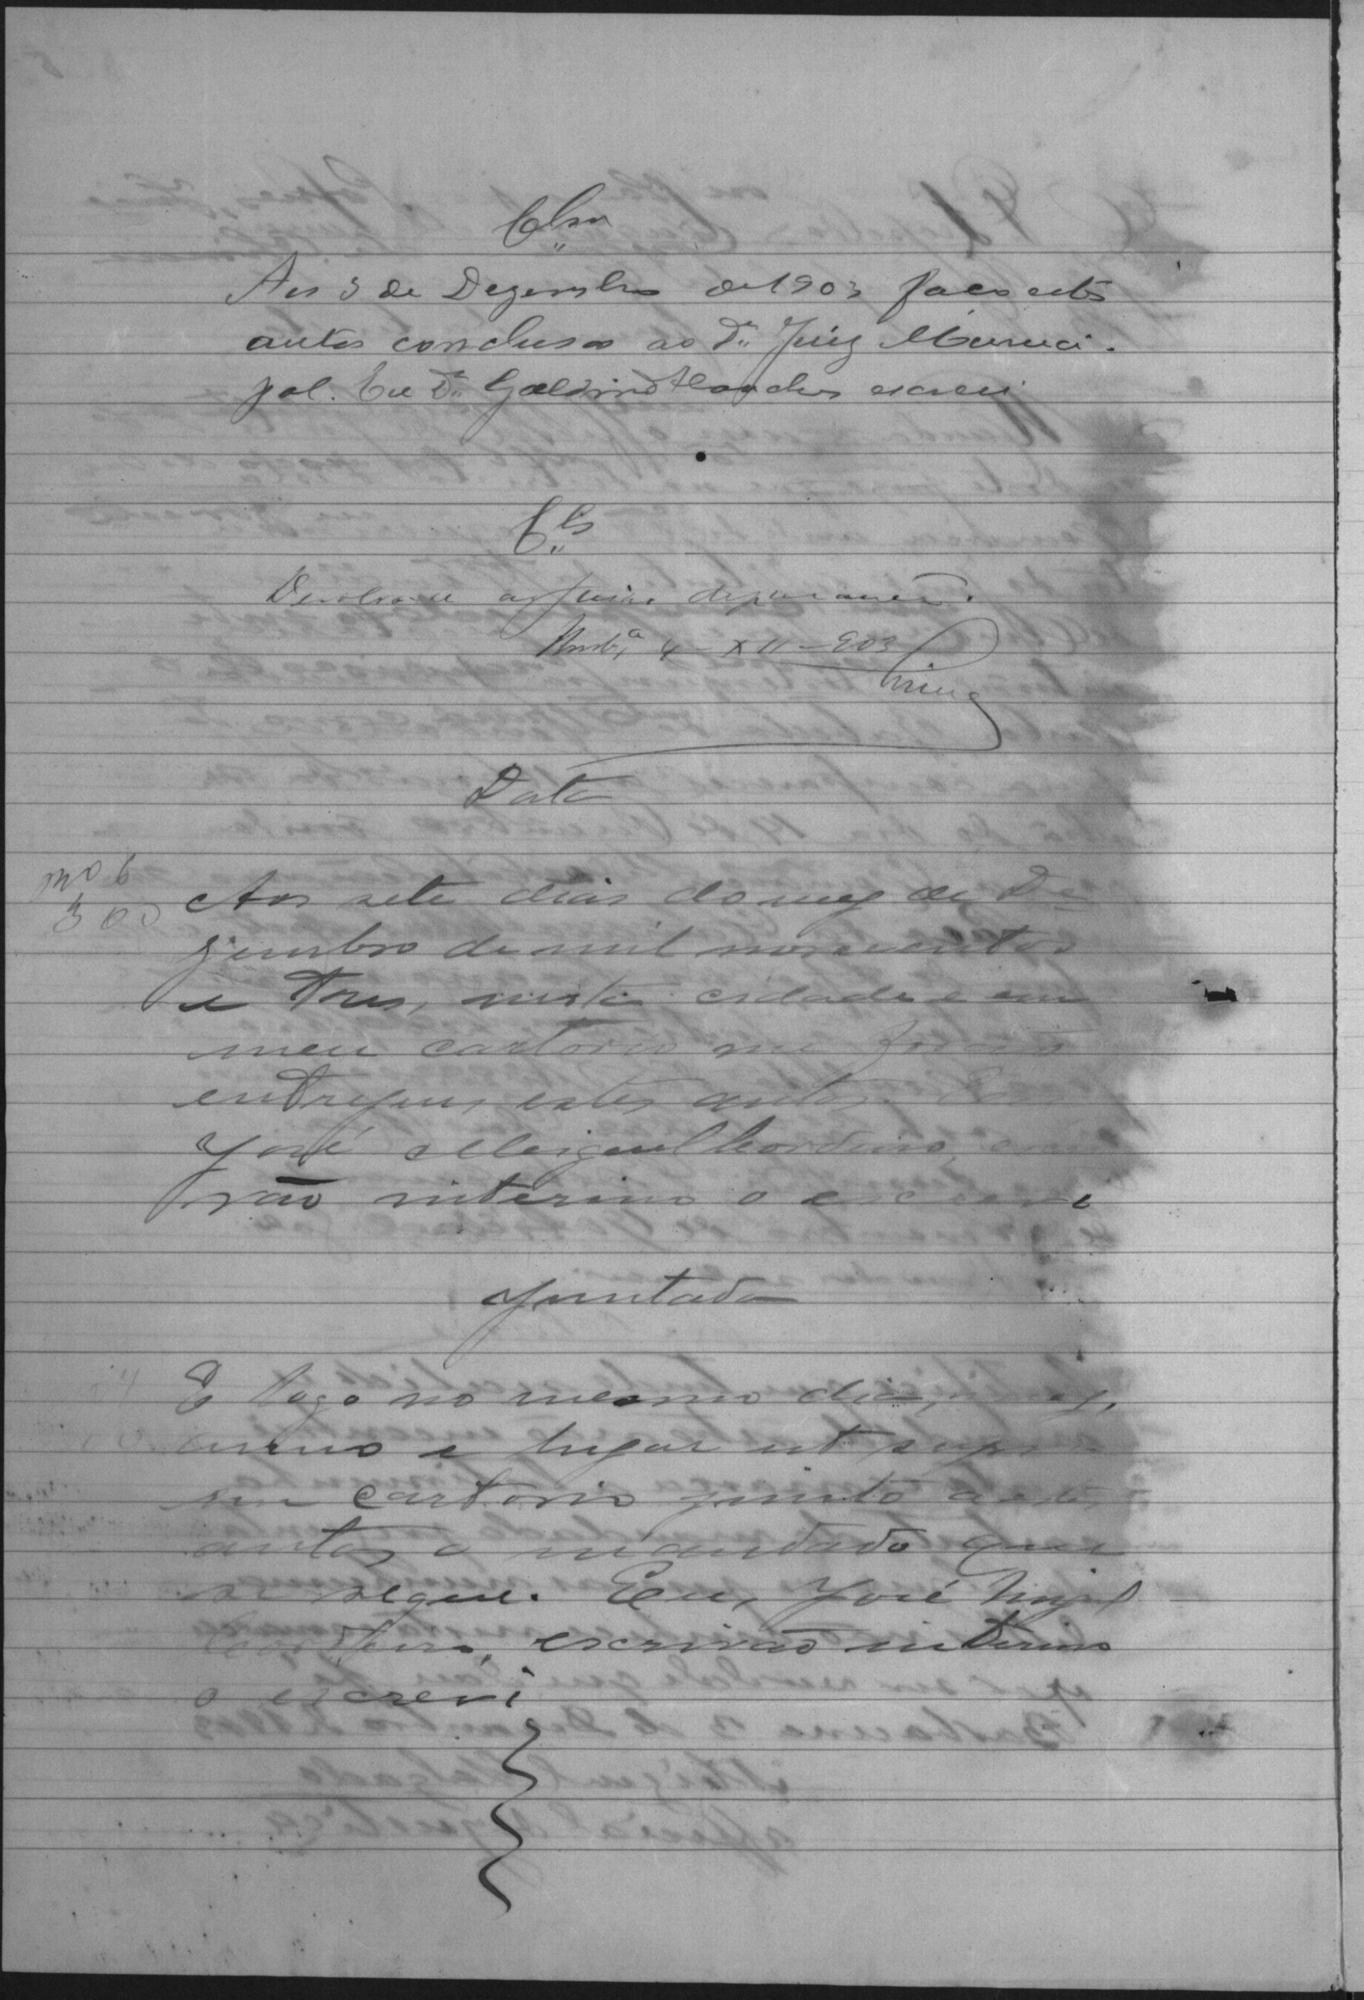 Clsm
Aos 3 de Dezembro de 1903 faço estes
autos conclusos ao Dr. Juiz Munici-
pal. Eu Dr. Galdino escrevi
Cls
4-XII-903
Data
300
Aos sete dias do mez de De-
zembro de mil novecentos
e tres, nesta cidade e em
meu cartorio me foram
entregues estes autos. Eu
José Miguel Cordeiro, escri-
vão interino o escrevi
Juntada
E logo no mesmo dia, mez,
anno e lugar ut supra
em cartorio junto a estes
autos o mandado que
se segue. Eu, José Migel
Cordeiro, escrivão interino
o escrevi